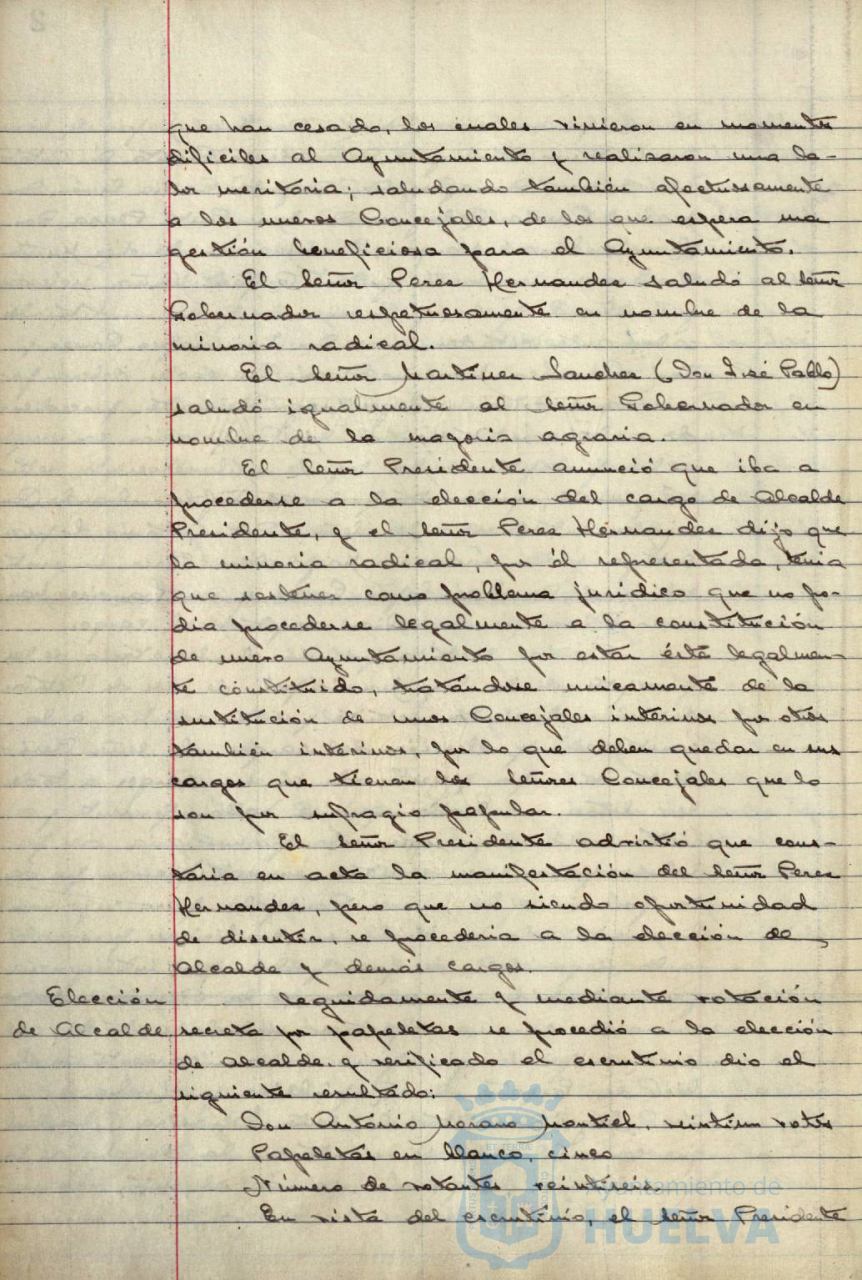 que han cesado, los cuales vinieron en momentos
dificiles al Ayuntamiento y realizaron una la-
bor meritoria; saludando también afectuosamente
a los nuevos Concejales, de los que espera una
gestión beneficiosa para el Ayuntamiento.
El Señor Perez Hernandez saludó al Señor
Gobernador respetuosamente en nombre de la
minoria radical.
El Señor Martinez Sanchez (Don José Pablo)
saludó igualmente al Señor Gobernador en
nombre de la mayoria agraria.
El Señor Presidente anunció que iba a
procederse a la elección del cargo de Alcalde
Presidente, y el Señor Perez Hernandez dijo que
la minoria radical, por él representada, tenia
que sostener como problema juridico que no po-
dia procederse legalmente a la constitución
de nuevo Ayuntamiento por estar éste legalmen-
te constituido, tratándose unicamente de la
sustitución de unos Concejales interinos por otros
también interinos, por lo que deben quedar en sus
cargos que tienen los Señores Concejales que lo
son por sufragio popular.
El Señor Presidente advirtió que cons-
taria en acta la manifestación del Señor Perez
Hernandez, pero que no siendo oportunidad
de discutir, se procederia a la elección de
Alcalde y demás cargos.
Elección
de Alcalde
Seguidamente y mediante votación
secreta por papeletas se procedió a la elección
de Alcalde, y verificado el escrutinio dio el
siguiente resultado:
Don Antonio Morano Montiel, veintiun votos
Papeletas en blanco, cinco
Número de votantes veintiseis.
En vista del escrutinio, el Señor Presidente
Ayuntamiento de
HUELVA